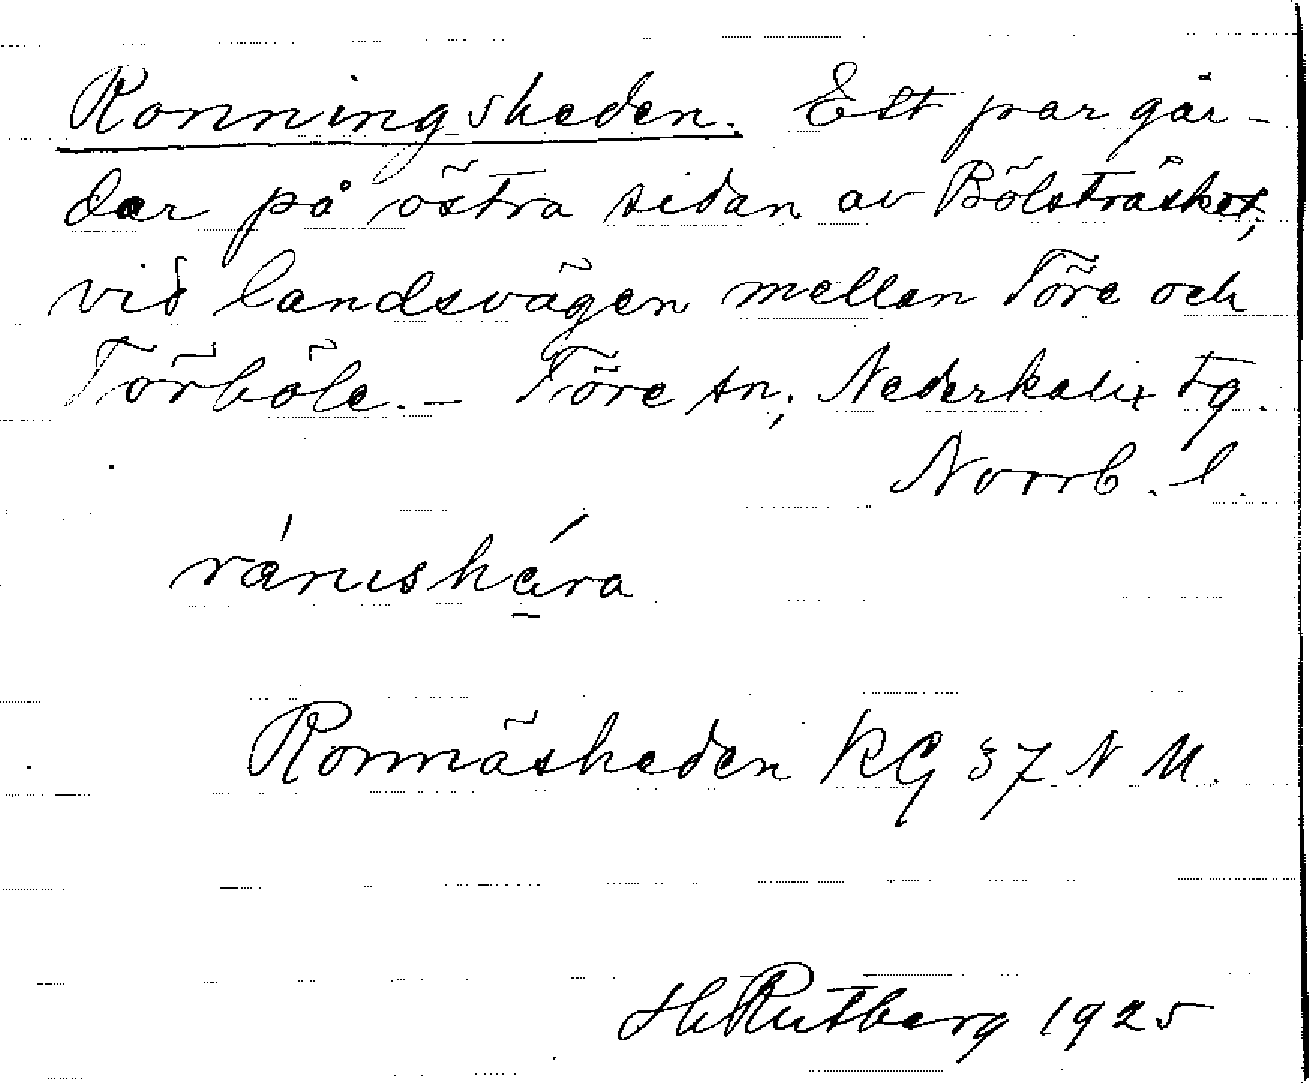 Ronningsheden. Ett par går-
dar på östra sidan av Bölsträsket,
vid landsvägen mellan Töre och
Törböle. – Töre sn, Nederkalix tg.
Norrb. l.
ránıshá̱ra
Ronnäsheden KG 37 N M.
H Rutberg 1925